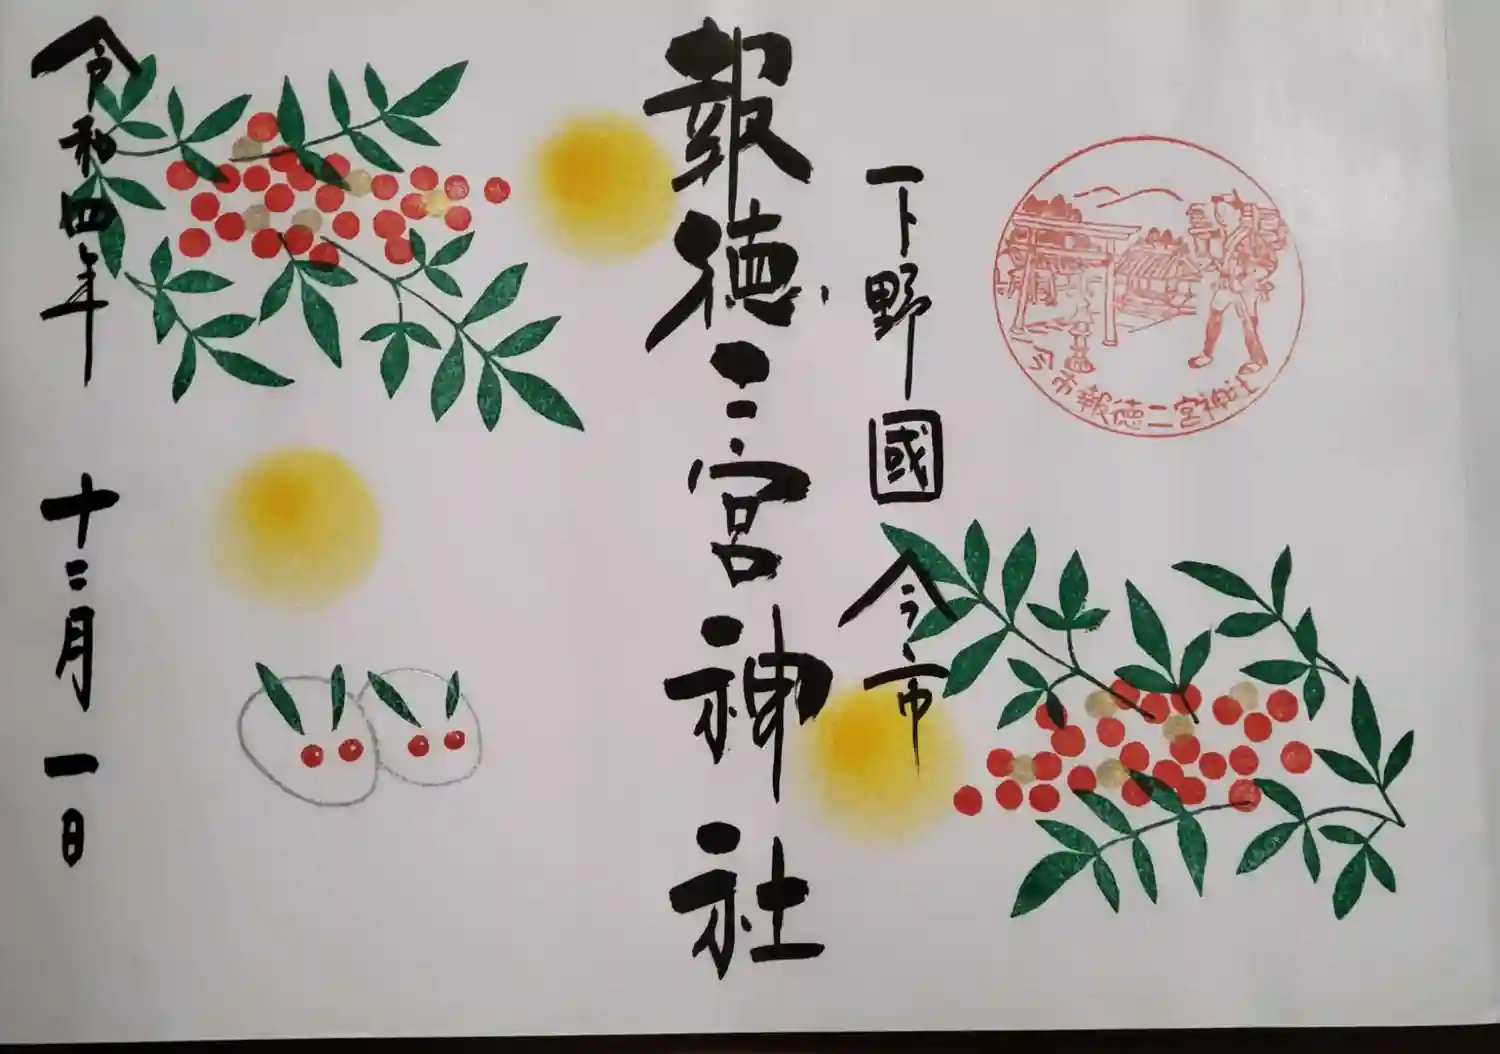 下野國 今市
報徳二宮神社
令和四年 十二月 一日
今市報徳二宮神社